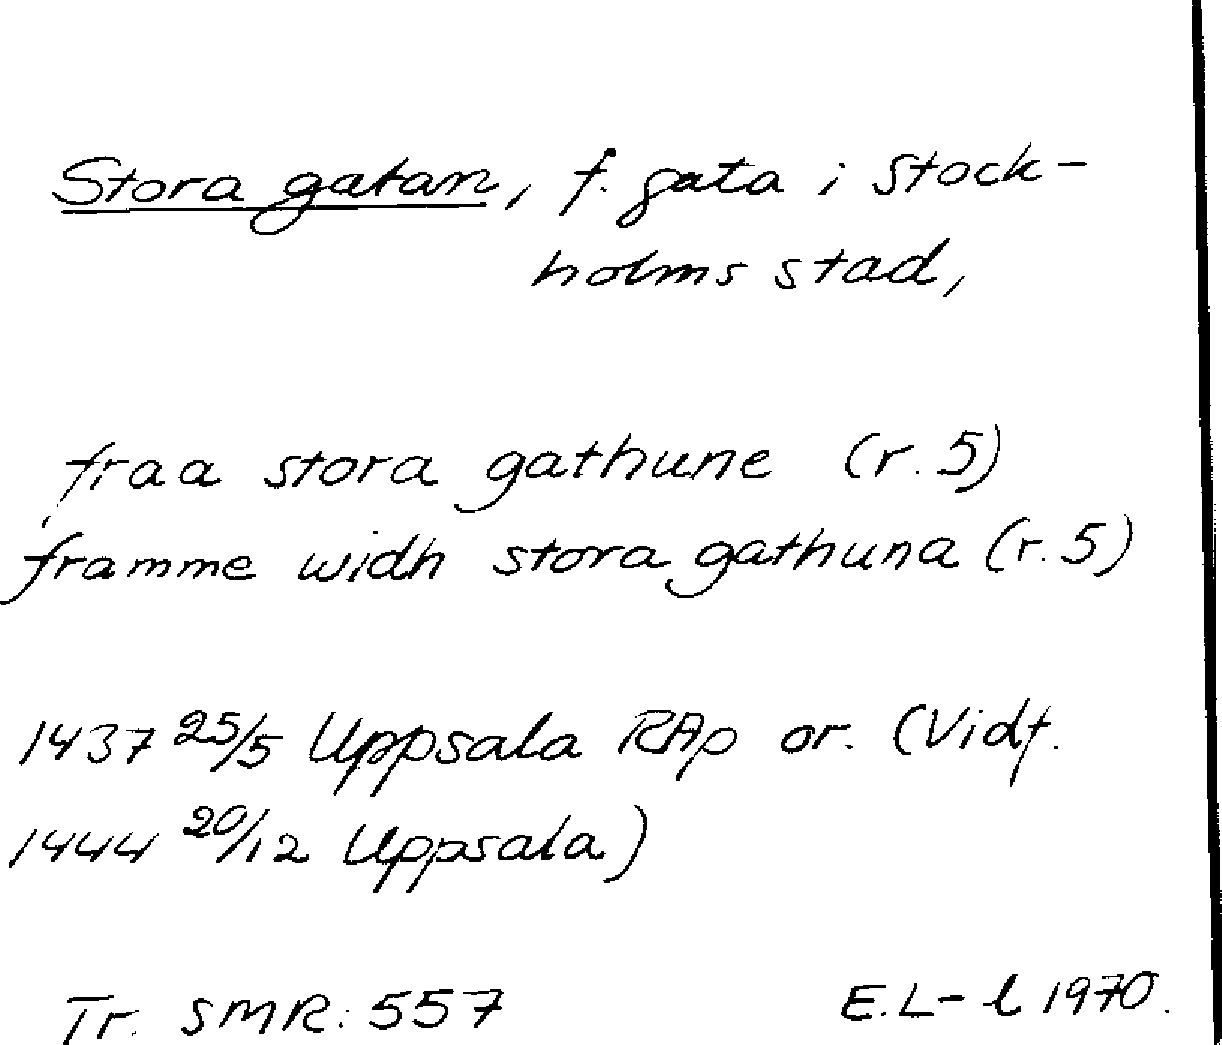 Stora gatan, f. gata i Stock-
holms stad,
fraa stora gathune (r. 5)
framme widh stora gathuna (r. 5)
1437 25/5 Uppsala RAp or. (Vidf.
1444 20/12 Uppsala)
Tr. SMR: 557 E.L-l 1970.